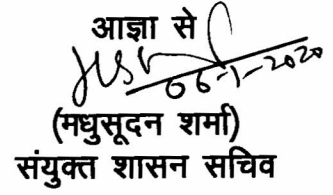 आज्ञा से
06-1-2020
(मधुसूदन शर्मा)
संयुक्त शासन सचिव